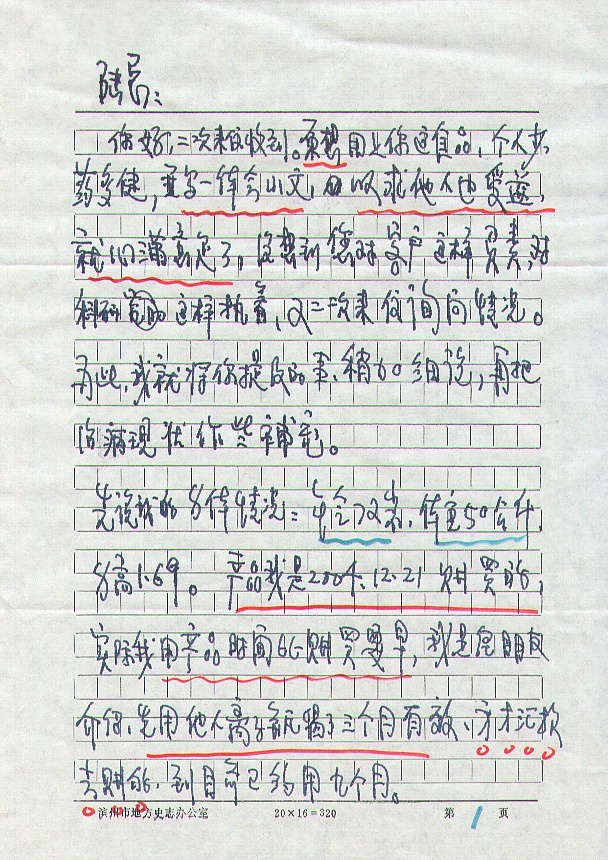 陆总：
你好，二次来信收到。原想用上你这食品，个人少
药多健，重写一体会小文，由以求他人也受益，
就心满意足了，没想到您对客户这样负责，对
科研这样执着，又二次来信询问情况。
为此，我就将你提及的事，稍加细说，再把
治病现状作些补充。
先说我的身体情况：年令72岁，体重50公斤，
身高1.69。产品我是2004.12.21购买的，
实际我用产品时间比购买要早，我是经朋友
介绍，先用他人离子瓶喝了三个月有效，才汇款
去购的，到目前已约用九个月。
滨州市地方史志办公室 20×16=320 第 1 页